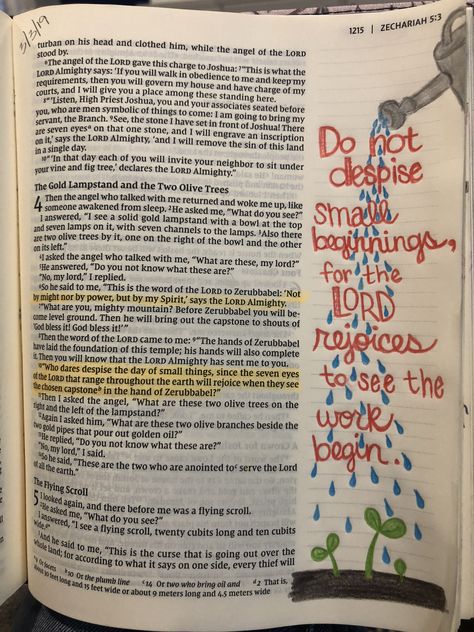 3/3/19
1215 | ZECHARIAH 5:3
turban on his head and clothed him, while the angel of the LORD
stood by.
⁶The angel of the LORD gave this charge to Joshua: ⁷"This is what the
LORD Almighty says: 'If you will walk in obedience to me and keep my
requirements, then you will govern my house and have charge of my
courts, and I will give you a place among these standing here.
⁸"'Listen, High Priest Joshua, you and your associates seated before
you, who are men symbolic of things to come: I am going to bring my
servant, the Branch. ⁹See, the stone I have set in front of Joshua! There
are seven eyesᵃ on that one stone, and I will engrave an inscription
on it,' says the LORD Almighty, 'and I will remove the sin of this land
in a single day.
¹⁰"'In that day each of you will invite your neighbor to sit under
your vine and fig tree,' declares the LORD Almighty."
The Gold Lampstand and the Two Olive Trees
4 Then the angel who talked with me returned and woke me up, like
someone awakened from sleep. ²He asked me, "What do you see?"
I answered, "I see a solid gold lampstand with a bowl at the top
and seven lamps on it, with seven channels to the lamps. ³Also there
are two olive trees by it, one on the right of the bowl and the other
on its left."
⁴I asked the angel who talked with me, "What are these, my lord?"
⁵He answered, "Do you not know what these are?"
"No, my lord," I replied.
⁶So he said to me, "This is the word of the LORD to Zerubbabel: 'Not
by might nor by power, but by my Spirit,' says the LORD Almighty.
⁷"What are you, mighty mountain? Before Zerubbabel you will be-
come level ground. Then he will bring out the capstone to shouts of
'God bless it! God bless it!'"
⁸Then the word of the LORD came to me: ⁹"The hands of Zerubbabel
have laid the foundation of this temple; his hands will also complete
it. Then you will know that the LORD Almighty has sent me to you.
¹⁰"Who dares despise the day of small things, since the seven eyes
of the LORD that range throughout the earth will rejoice when they see
the chosen capstoneᵇ in the hand of Zerubbabel?"
¹¹Then I asked the angel, "What are these two olive trees on the
right and the left of the lampstand?"
¹²Again I asked him, "What are these two olive branches beside the
two gold pipes that pour out golden oil?"
¹³He replied, "Do you not know what these are?"
"No, my lord," I said.
¹⁴So he said, "These are the two who are anointed toᶜ serve the Lord
of all the earth."
The Flying Scroll
5 I looked again, and there before me was a flying scroll.
²He asked me, "What do you see?"
I answered, "I see a flying scroll, twenty cubits long and ten cubits
wide.ᵈ"
³And he said to me, "This is the curse that is going out over the
whole land; for according to what it says on one side, every thief will
ᵃ9 Or facets ᵇ10 Or the plumb line ᶜ14 Or two who bring oil and ᵈ2 That is,
about 30 feet long and 15 feet wide or about 9 meters long and 4.5 meters wide
Do not
despise
small
beginnings,
for the
LORD
rejoices
to see the
work
begin.